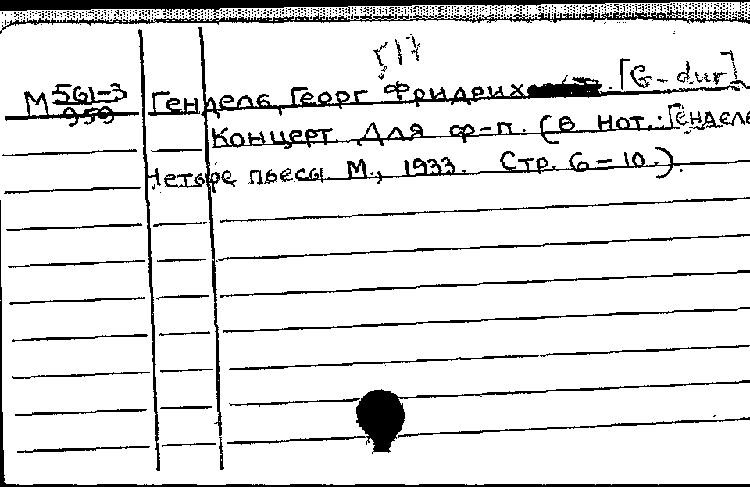 517
М 561-3/959 Гендель, Георг Фридрих [G-dur]
Концерт для ф-п. (В нот.: Гендель
Четыре пьесы М., 1933. Стр. 6-10.).